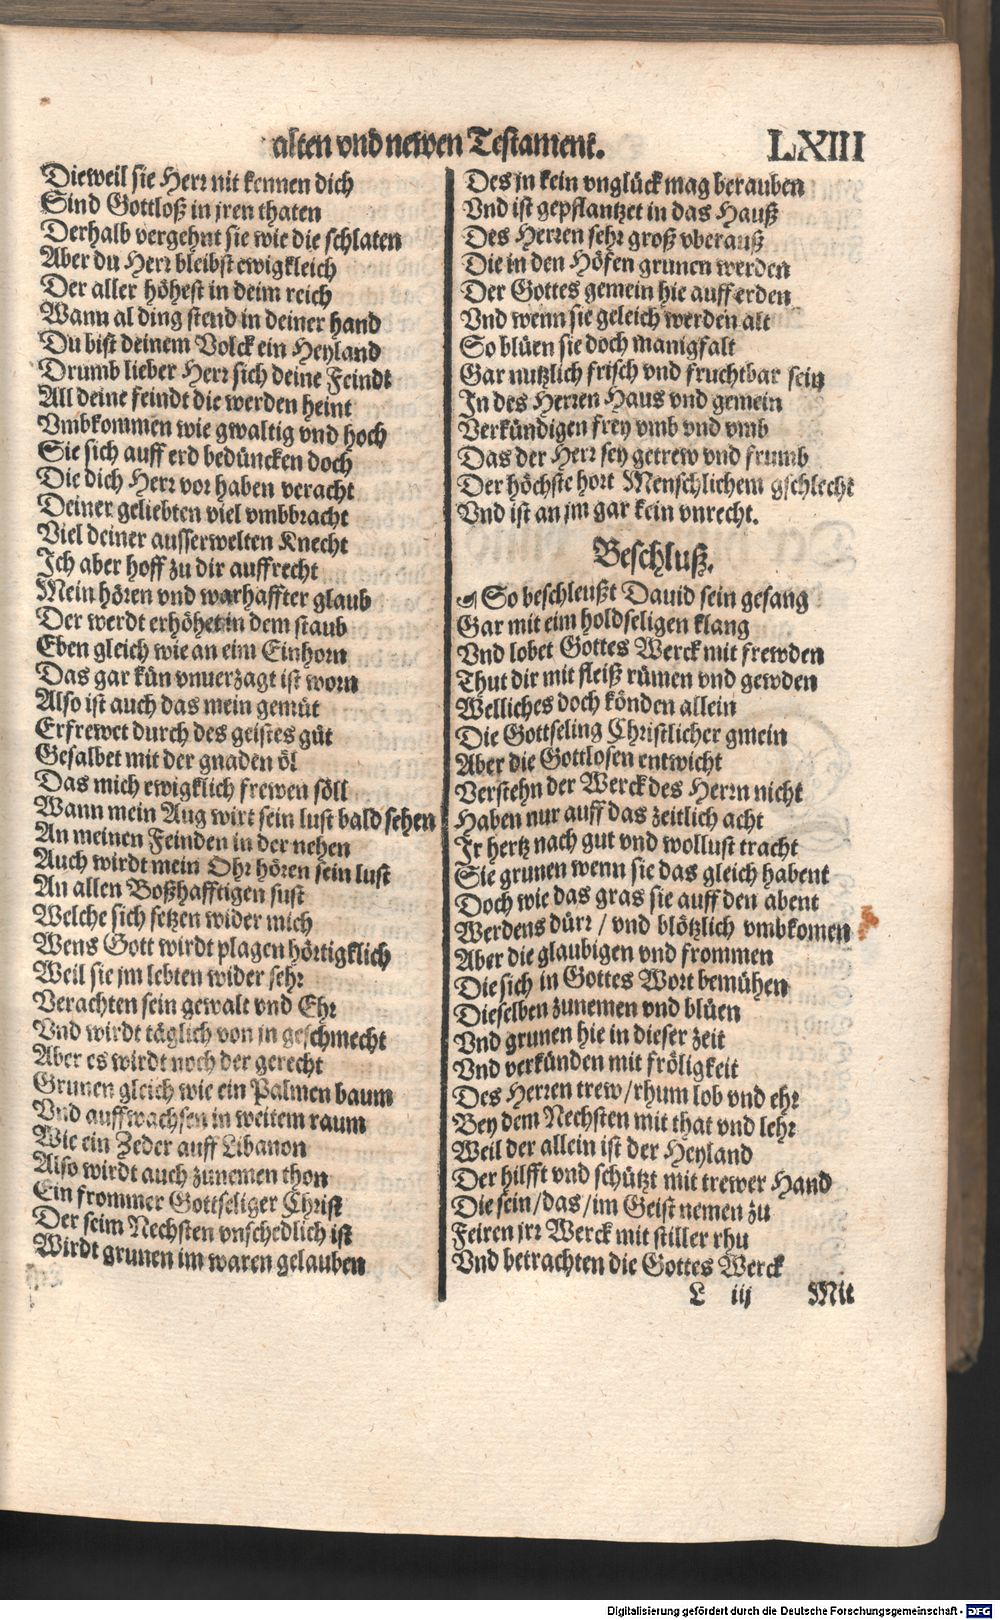 alten vnd newen Testament. LXIII
Dieweil sie Herr nit kennen dich
Sind Gottloß in jren thaten
Derhalb vergehnt sie wie die schlaten
Aber du Herr bleibst ewigkleich
Der aller höhest in deim reich
Wann al ding stend in deiner hand
Du bist deinem Volck ein Heyland
Drumb lieber Herr sich deine Feindt
All deine feindt die werden heint
Vmbkommen wie gwaltig vnd hoch
Sie sich auff erd bedüncken doch
Die dich Herr vor haben veracht
Deiner geliebten viel vmbbracht
Viel deiner ausserwelten Knecht
Ich aber hoff zu dir auffrecht
Mein hören vnd warhaffter glaub
Der werdt erhöhet in dem staub
Eben gleich wie an eim Einhorn
Das gar kün vnuerzagt ist worn
Also ist auch das mein gemüt
Erfrewet durch des geistes güt
Gesalbet mit der gnaden öl
Das mich ewigklich frewen söll
Wann mein Aug wirt sein lust bald sehen
An meinen Feinden in der nehen
Auch wirdt mein Ohr hören sein lust
An allen Boßhafftigen sust
Welche sich setzen wider mich
Wens Gott wirdt plagen hörtigklich
Weil sie jm lebten wider sehr
Verachten sein gewalt vnd Ehr
Vnd wirdt täglich von jn geschmecht
Aber es wirdt noch der gerecht
Grunen gleich wie ein Palmen baum
Vnd auffwachsen in weitem raum
Wie ein Zeder auff Libanon
Also wirdt auch zunemen thon
Ein frommer Gottseliger Christ
Der seim Nechsten vnschedlich ist
Wirdt grunen im waren gelauben
Des jn kein vnglück mag berauben
Vnd ist gepflantzet in das Hauß
Des Herren sehr groß vberauß
Die in den Höfen grunen werden
Der Gottes gemein hie auff erden
Vnd wenn sie geleich werden alt
So blüen sie doch manigfalt
Gar nutzlich frisch vnd fruchtbar sein
In des Herren Haus vnd gemein
Verkündigen frey vmb vnd vmb
Das der Herr sey getrew vnd frumb
Der höchste hort Menschlichem gschlecht
Vnd ist an jm gar kein vnrecht.
Beschluß.
So beschleußt Dauid sein gesang
Gar mit eim holdseligen klang
Vnd lobet Gottes Werck mit frewden
Thut dir mit fleiß rümen vnd gewden
Welliches doch könden allein
Die Gottseling Christlicher gmein
Aber die Gottlosen entwicht
Verstehn der Werck des Herrn nicht
Haben nur auff das zeitlich acht
Ir hertz nach gut vnd wollust tracht
Sie grunen wenn sie das gleich habent
Doch wie das gras sie auff den abent
Werdens dürr / vnd blötzlich vmbkomen
Aber die glaubigen vnd frommen
Die sich in Gottes Wort bemühen
Dieselben zunemen vnd blüen
Vnd grunen hie in dieser zeit
Vnd verkünden mit fröligkeit
Des Herren trew / rhum lob vnd ehr
Bey dem Nechsten mit that vnd lehr
Weil der allein ist der Heyland
Der hilfft vnd schützt mit trewer Hand
Die sein / das / im Geist nemen zu
Feiren jrr Werck mit stiller rhu
Vnd betrachten die Gottes Werck
L iij Mit
Digitalisierung gefördert durch die Deutsche Forschungsgemeinschaft - DFG